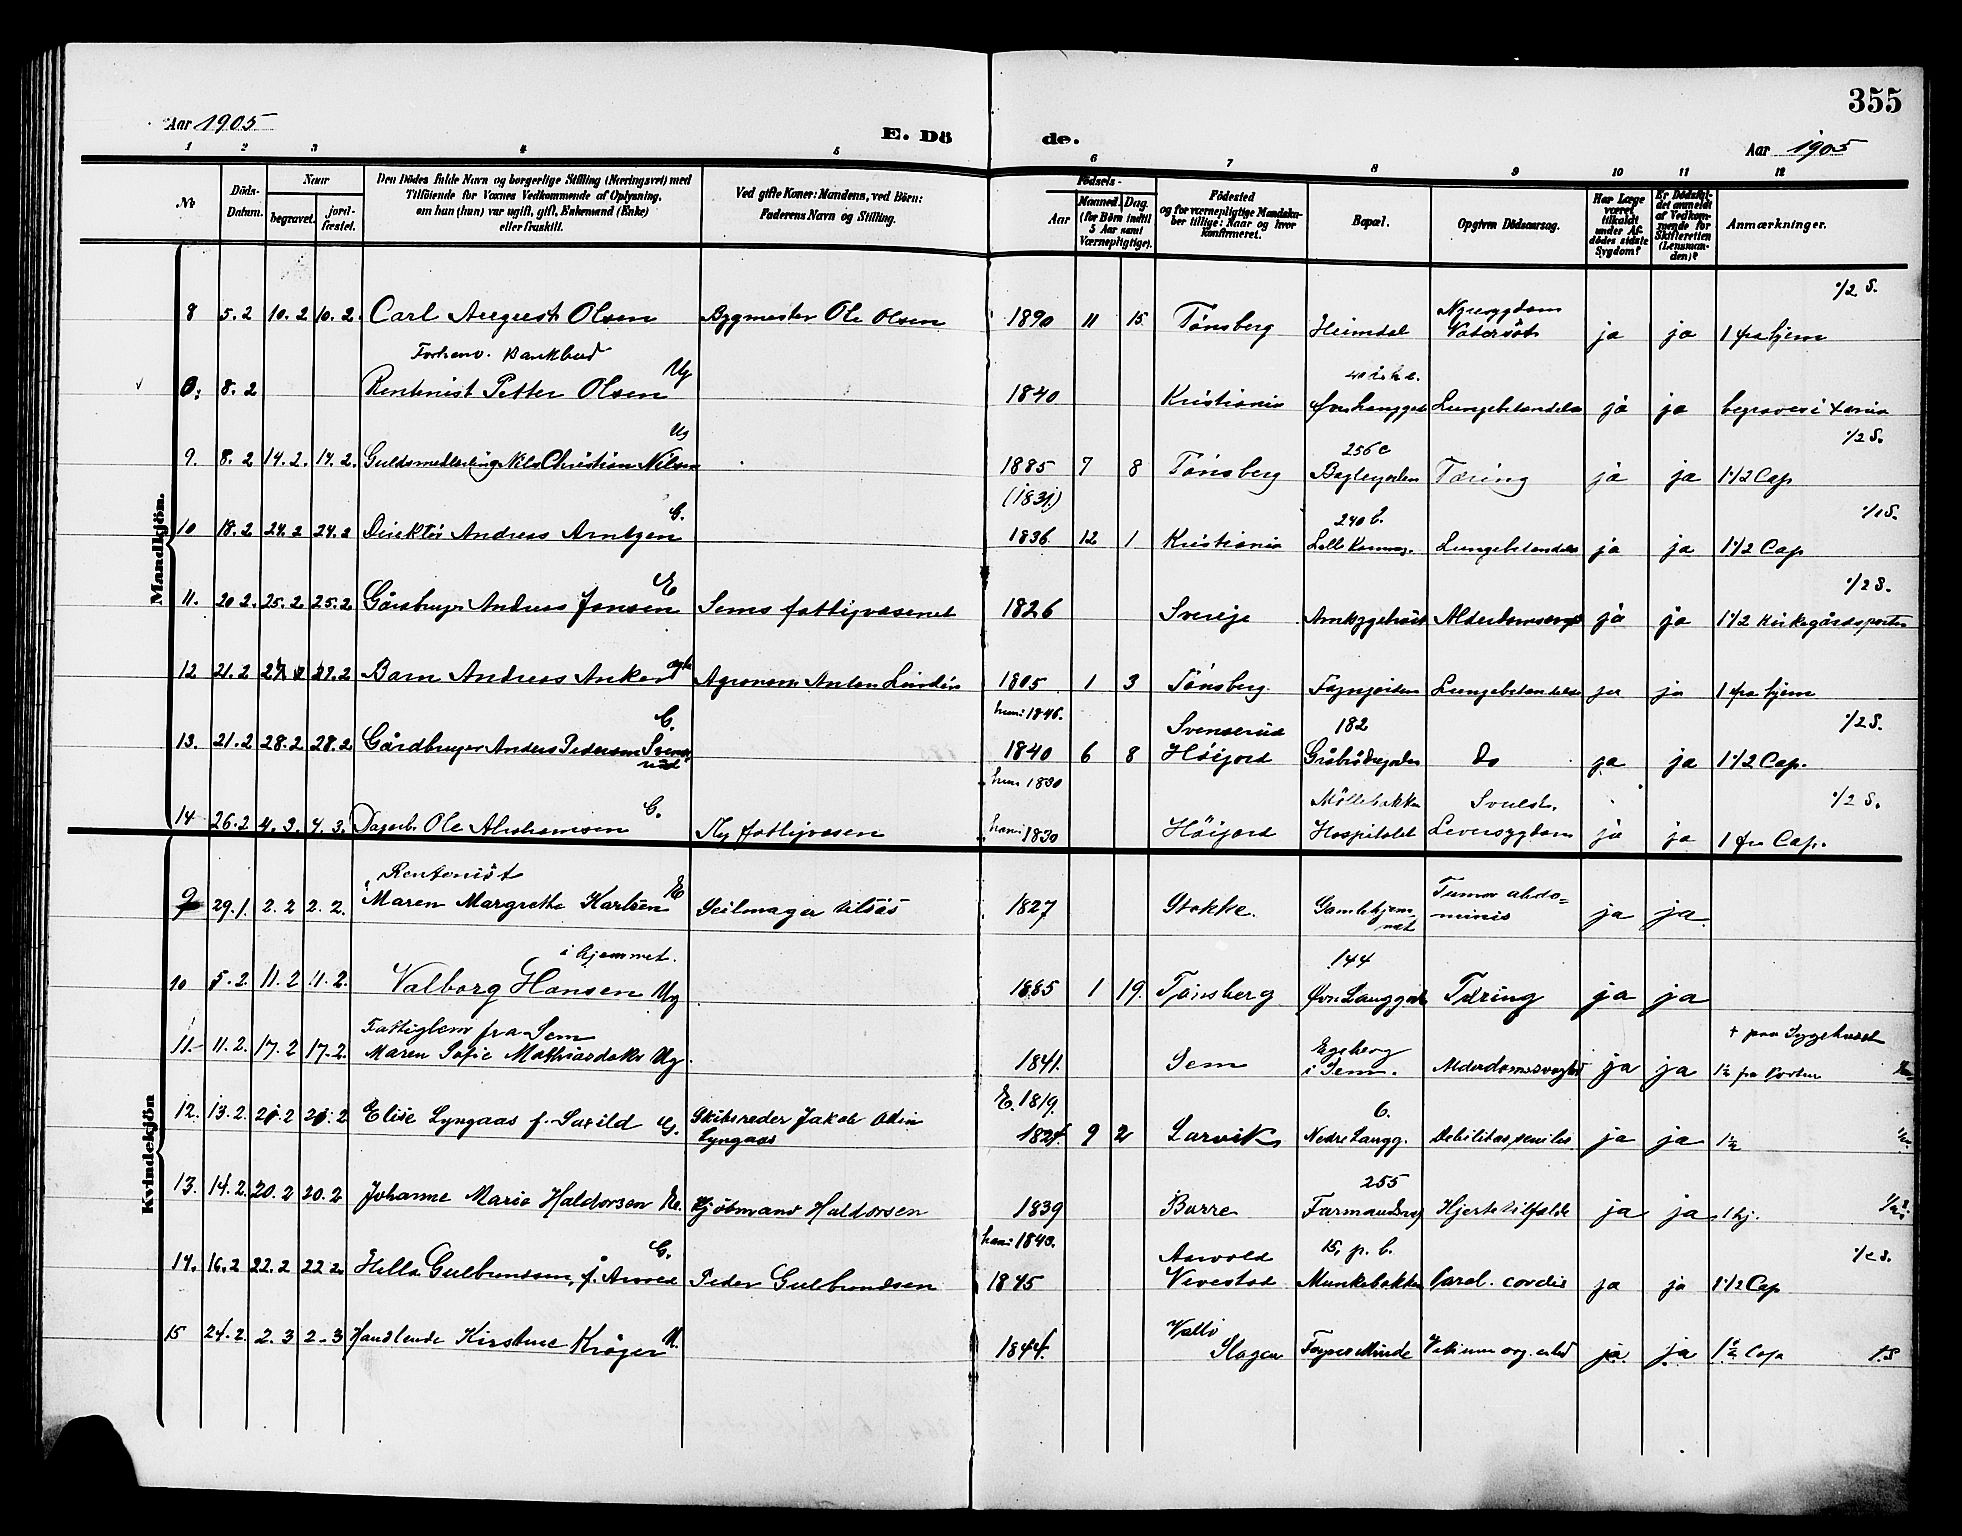 355
Aar 1905 E. Dö de. Aar 1905
1 2 3 4 5 6 7 8 9 10 11 12
No Döds-Datum. Naar begravet. jordfæstet. Den Dödes fulde Navn og borgerlige Stilling (Næringsvei) med Tilföiende for Voxnes Vedkommende af Oplysning, om han (hun) var ugift, gift, Enkemand (Enke) eller fraskilt. Ved gifte Koner: Mandens, ved Börn: Faderens Navn og Stilling. Födsels- Aar Maaned. Dag. (for Börn indtil 5 Aar samt Værnepligtige). Födested og for værnepligtige Mandskaber tillige: Naar og hvor konfirmeret. Bopæl. Opgiven Dödsaarsag. Har Læge været tilkaldt under Afdödes sidste Sygdom? Er Dödsfaldet anmeldt af Vedkommende for Skifteretten (Lensmanden)? Anmærkninger.
Mandkjön.
1/2 S.
8 5.2 10.2 10.2 Carl August Olsen Bygmester Ole Olsen 1890 11 15 Tønsberg Heimdal Nyresygdom Vatersot ja ja 1 fra hjem
Forhenv. Bankbud
0: 8.2 Rentenist Petter Olsen Ug 1840 Kristiania Øvrelanggade Lungebetændelse ja ja begraves i X ania
1/2 S.
9. 8.2 14.2. 14.2. Guldsmedlærling Nils Christian Nilsen Ug 1885 7 8 Tønsberg 256 c Baglergaden Tæring ja ja 1 1/2 Cap
(1831)
10 18.2 24.2 24.2 Direktør Andreas Arntzen G. 1836 12 1 Kristiania 240 b. Lungebetændelse ja ja 1 1/2 Cap
1/2 S.
11. 20.2. 25.2 25.2 Gårdbruger Andreas Jensen E Sems fattigvæsenet 1826 Sverige Alderdomssvagh ja ja 1 1/2 Kirkegårdsporten
12 21.2 27.2 27.2 Barn Andreas Anker ægte Agronom Anton Lindén 1905 1 3 Tønsberg Lungebetændelse ja ja 1 fra hjem
han: 1846. 1/2 S.
13. 21.2 28.2 28.2 Gårdbruger Anders Pedersen Svenserud G. 1840 6 8 Svenserud Høijord 182 Gråbrødregaden Do ja ja 1 1/2 Cap.
hun 1830
1/2 S.
14 26.2 4.3. 4.3. Dagarb. Ole Abrahamsen G. Ny fattigvæsen han: 1830 Høijord Møllebakken Hospitalet Svulst. Leversygdom ja ja 1 fra Cap.
Kvindekjön
Rentenist
9 29.1. 2.2 2.2. Maren Margrethe Karlsen E Seilmager 1827 Stokke. Gamlehjemmet Tumor abdominis ja ja
i hjemmet.
10 5.2. 11.2 11.2. Valborg Hansen Ug 1885 1 19. Tønsberg 144 Øvre Langgade Tæring ja ja
Fattiglem fra Sem + paa Sygehuset
11. 11.2. 17.2 17.2. Maren Sofie Mathiasdatter Ug. 1841. Sem Egeberg i Sem. Alderdomssvaghed ja ja 1/2 fra Porten
E. 1819.
12. 13.2. 20.2 20.2 Elise Lyngaas f. Saxild G. Skibsreder Jakob Odin Lyngaas 1824 9 2 Larvik 6. Nedre Langg. Debilitas senilis ja ja 1 1/2
13. 14.2 20.2 20.2 Johanne Marie Haldorsen E. Kjøbmand Haldorsen 1839 Borre 255 Farmandsvej Hjertetilfælde ja ja 1 hj.
han: 1843. 1/2 S.
14. 16.2 22.2 22.2 Hella Gulbrandsen, f. G. Peder Gulbrandsen 1845 Vivestad 15, p. b. Munkebakken Paral. cordis ja ja 1 1/2 Cap
15 24.2. 2.3 2.3 Handlende Kirstine Krøger U. 1844. Vallø Slagen Vitium org. cord ja ja 1 1/2 Cap 1.S